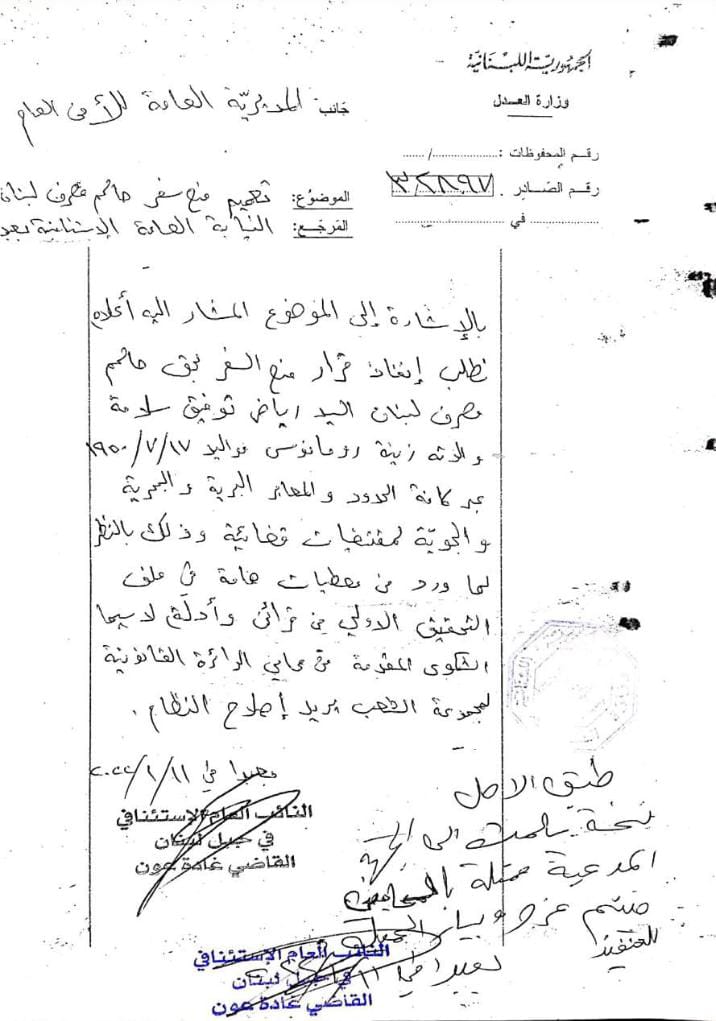 الجمهورية اللبنانية
وزارة العدل
رقم المحفوظات : ............/......
رقم الصادر . ٣٢٨٩٧
.................. في ..................
جانب المديريّة العامة للأمن العام
الموضوع: تعميم منع سفر حاكم مصرف لبنان
المرجع: النيابة العامة الإستئنافية بعبدا
بالإشارة إلى الموضوع المشار اليه أعلاه
نطلب إنفاذ قرار منع السفر بحق حاكم
مصرف لبنان السيد رياض توفيق سلامة
والدته زينة رومانوس مواليد ١٩٥٠/٧/١٧
عبر كافة الحدود والمعابر البرية والبحرية
والجويّة لمقتضيات قضائية وذلك بالنظر
لما ورد من معطيات هامة في ملف
التحقيق الاولي من قرائن وأدلة لا سيما
الشكوى المقدمة من محامي الدائرة القانونية
لمجموعة الشعب يريد إصلاح النظام.
بعبدا في ٢٠٢٢/١/١١
النائب العام الإستئنافي
في جبل لبنان
القاضي غادة عون
طبق الاصل
نسخة سلمت الى الجهة
المدعية ممثلة بالمحاميين
هيثم عزو وبيار الجميل
للتنفيذ
بعبدا في ١١
النائب العام الإستئنافي
في جبل لبنان
القاضي غادة عون